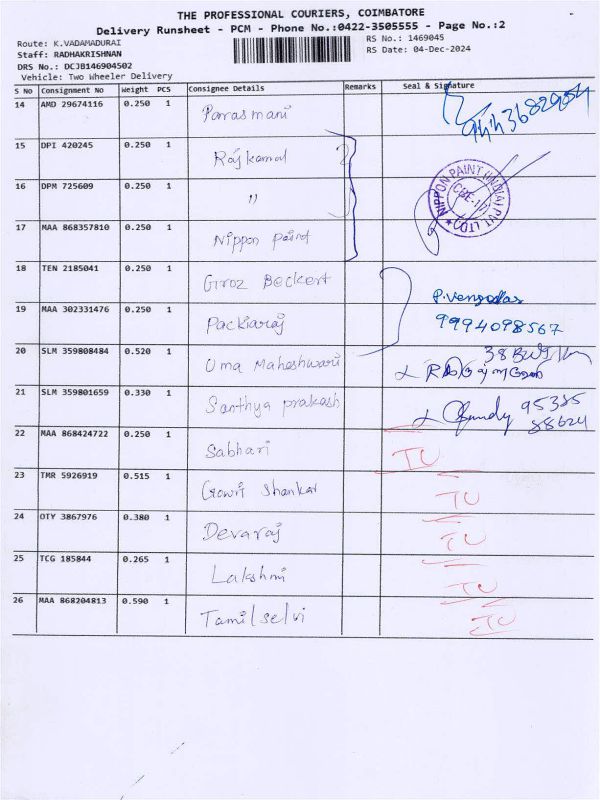 THE PROFESSIONAL COURIERS, COIMBATORE
Delivery Runsheet - PCM - Phone No.:0422-3505555 - Page No.:2
Route: K.VADAMADURAI
RS No.: 1469045
Staff: RADHAKRISHNAN
RS Date: 04-Dec-2024
DRS No.: DCJB146904502
Vehicle: Two Wheeler Delivery
S No Consignment No Weight PCS Consignee Details Remarks Seal & Signature
14 AMD 29674116 0.250 1 Parasmani
15 DPI 420245 0.250 1 Rajkamal
16 DPM 725609 0.250 1 "
NIPPON PAINT (INDIA) PVT. LTD.
17 MAA 868357810 0.250 1 Nippon paint
18 TEN 2185041 0.250 1 Groz Beckert
P. Vengadas
19 MAA 302331476 0.250 1 Packiaraj 9994098567
20 SLM 359808484 0.520 1 Uma Maheshwari
21 SLM 359801659 0.330 1 Santhya prakash 95385
88624
22 MAA 868424722 0.250 1 Sabhari IU
23 TMR 5926919 0.515 1 Gowri Shankar IU
24 OTY 3867976 0.380 1 Devaraj IU
25 TCG 185844 0.265 1 Lakshmi IU
26 MAA 868204813 0.590 1 Tamilselvi IU